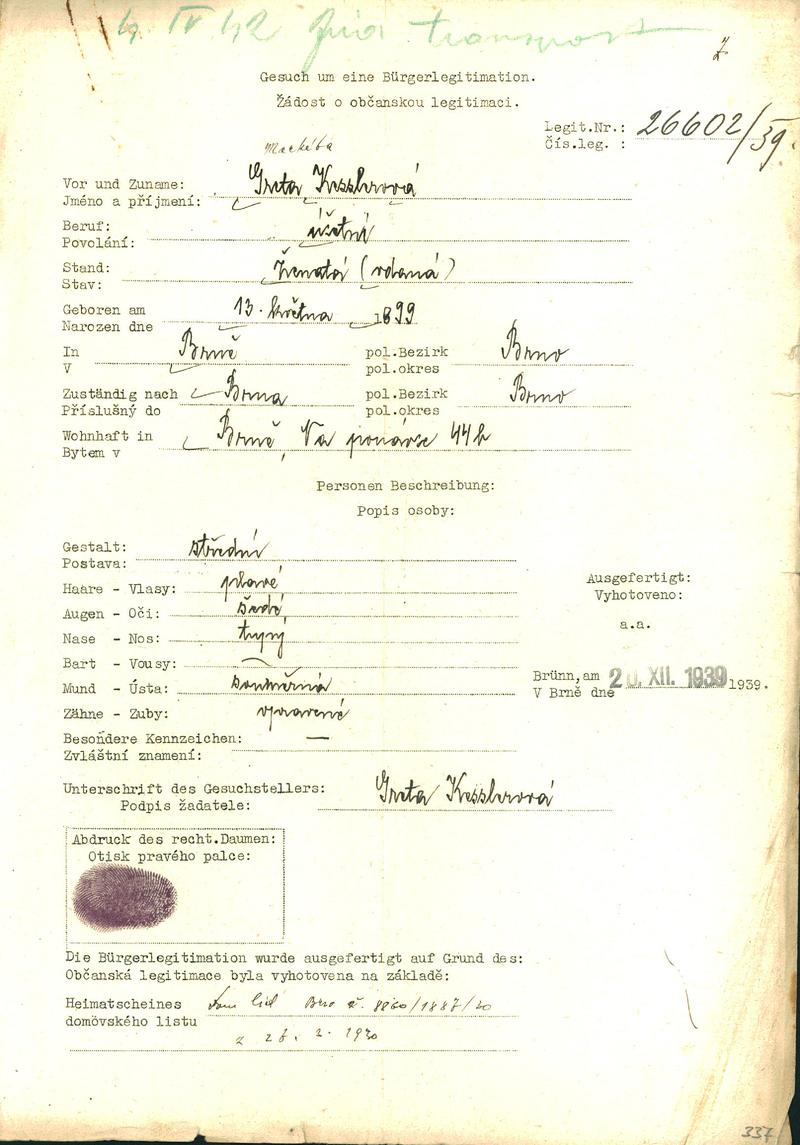 4 IV 42 transport
7
Gesuch um eine Bürgerlegitimation.
Žádost o občanskou legitimaci.
Legit.Nr.: 26602/39.
Čís.leg. :
Markéta
Vor und Zuname: Greta Kesslerová
Jméno a příjmení:
Beruf: účetní
Povolání:
Stand: Ženatá (vdaná)
Stav:
Geboren am 13. května 1899
Narozen dne
In Brně pol.Bezirk Brno
V pol.okres
Zuständig nach Brna pol.Bezirk Brno
Příslušný do pol.okres
Wohnhaft in Brně, Na ponávce 44b
Bytem v
Personen Beschreibung:
Popis osoby:
Gestalt: střední
Postava:
Haare - Vlasy: plavé
Augen - Oči: šedé
Nase - Nos: tupý
Bart - Vousy: —
Mund - Ústa: souměrná
Zähne - Zuby: spravené
Besondere Kennzeichen: —
Zvláštní znamení:
Ausgefertigt:
Vyhotoveno:
a.a.
Brünn,am 20. XII. 1939 1939.
V Brně dne
Unterschrift des Gesuchstellers: Greta Kesslerová
Podpis žadatele:
Abdruck des recht.Daumen:
Otisk pravého palce:
Die Bürgerlegitimation wurde ausgefertigt auf Grund des:
Občanská legitimace byla vyhotovena na základě:
Heimatscheines Dom list Brno č. 8860/1887/30
domovského listu
z 28. 2. 1930
337